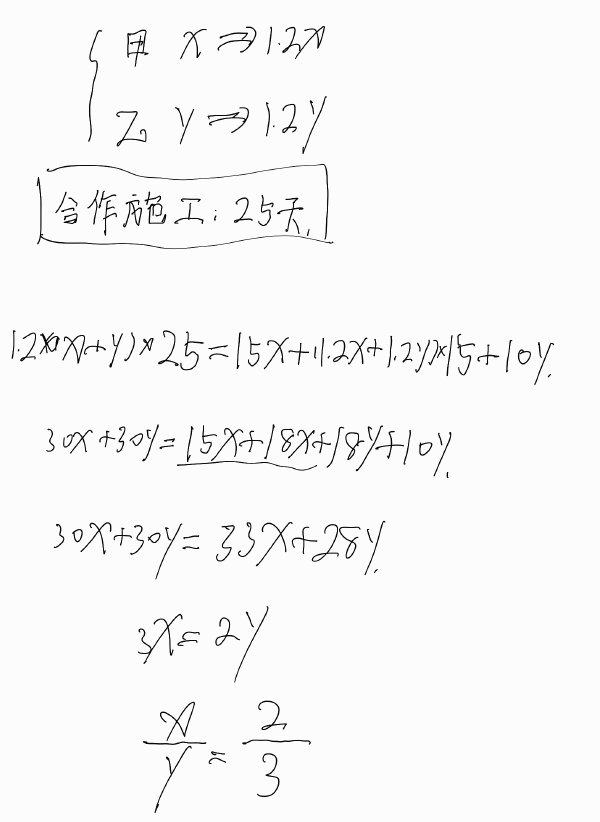 甲 x ⇒ 1.2x
乙 y ⇒ 1.2y
合作施工：25天.
1.2×(x+y)×25=15x+(1.2x+1.2y)×15+10y.
30x+30y=15x+18x+18y+10y.
30x+30y=33x+28y.
3x=2y
x/y=2/3